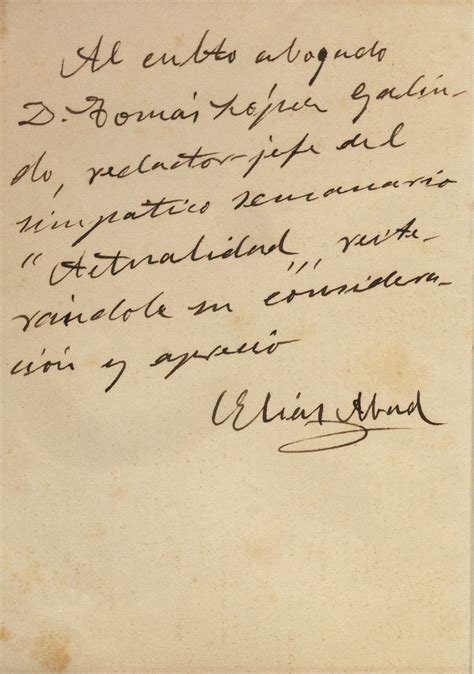 Al culto abogado
D. Tomás López Galin-
do, redactor-jefe del
simpático semanario
"Actualidad", reite-
rándole su considera-
ción y aprecio
Elías Abad